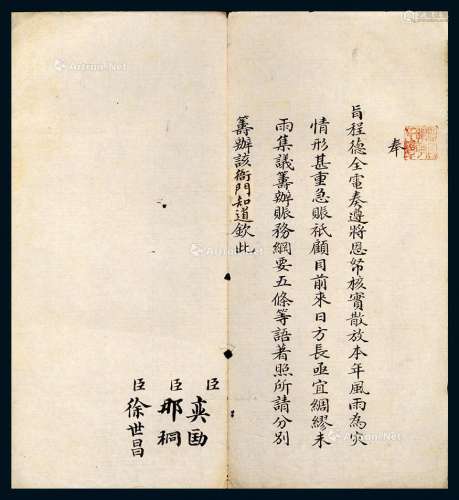 奉
旨程德全電奏遵將恩帑核實散放本年風雨為灾
情形甚重急賑祇顧目前來日方長亟宜綢繆未
雨集議籌辦賑務綱要五條等語著照所請分別
籌辦該衙門知道欽此
臣奕劻
臣那桐
臣徐世昌
Artron.Net
Artron.Net
Artron.Net